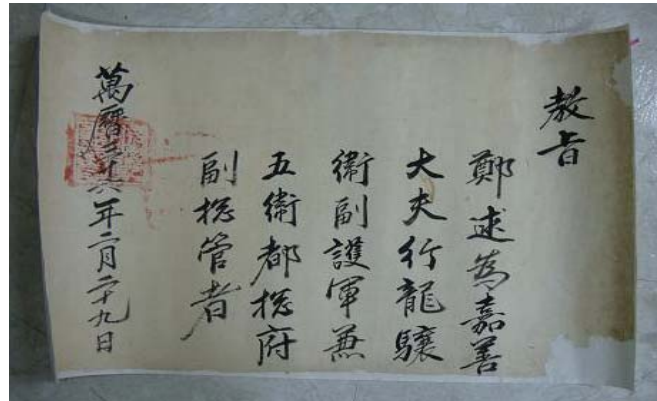 教旨
鄭逑為嘉善
大夫行龍驤
衛副護軍兼
五衛都摠府
副摠管者
萬曆三十六年二月二十九日